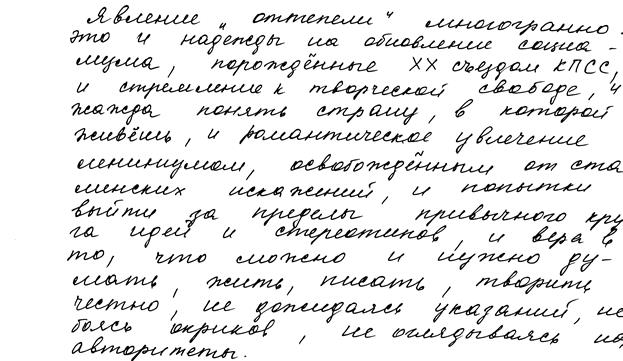 Явление "оттепели" многогранно.
это и надежды на обновление социа-
лизма, порождённые XX съездом КПСС,
и стремление к творческой свободе, и
жажда понять страну, в которой
живёшь, и романтическое увлечение
ленинизмом, освобождённым от ста
линских искажений, и попытки
выйти за пределы привычного кру
га идей и стереотипов, и вера в
то, что можно и нужно ду-
мать, жить, писать, творить
честно, не дожидаясь указаний, не
боясь окриков, не оглядываясь на
авторитеты.